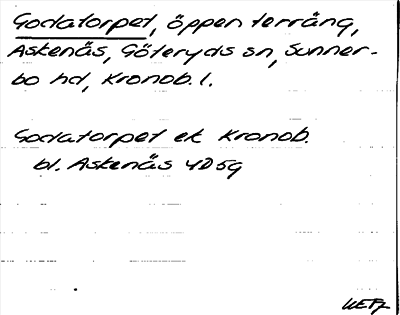 Godatorpet, öppen terräng,
Askenäs, Göteryds sn, Sunner-
bo hd, Kronob. l.
Godatorpet ek Kronob.
bl. Askenäs 4D5g